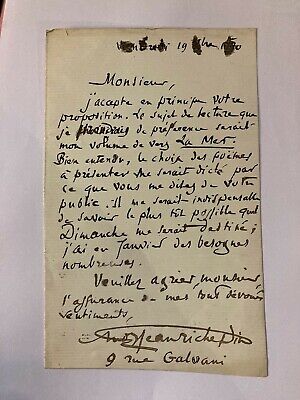 Vendredi 19
Monsieur,
j'accepte en principe votre
proposition. Le sujet de lecture que
je de préférence serait
mon volume de vers La Mer.
Bien entendu, le choix des poèmes
à présenter me serait dicté par
ce que vous me dites de votre
public. Il me serait indispensable
de savoir le plus tôt possible quel
Dimanche me serait destiné ;
j'ai en Janvier des besognes
nombreuses.
Veuillez agréer, monsieur
l'assurance de mes tout dévoués
sentiments,
Jean Richepin
9 rue Galvani